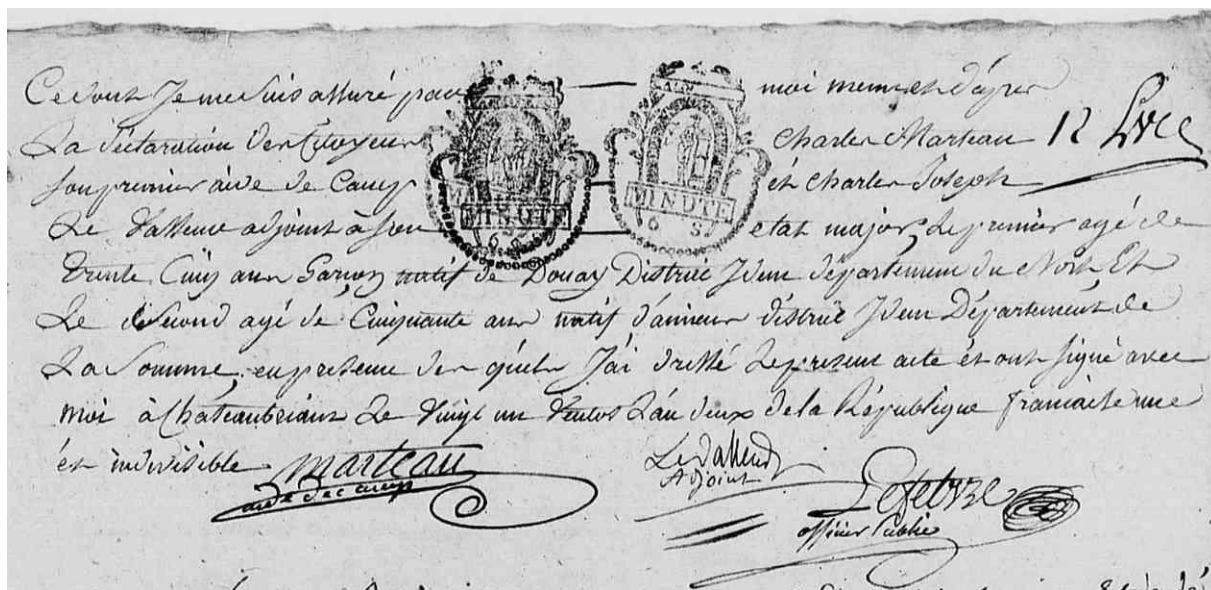 Ce dont Je me suis assuré par moi meme et d'aprez
La déclaration des Citoyens Charles Marteau 12 Livre
son premier aide de Camp et Charles Joseph
Le adjoint à son etat major, Le premier agé de
trente Cinq ans Garçon natif de Douay District Idem département du Nord Et
Le Second agé de Cinquante ans natif d'amiens district Idem Département de
La Somme, en presence des quels J'ai dressé Le present acte et ont signé avec
moi à Chateaubriant Le vingt un Ventos L'an deux de la République francaise une
et indivisible marteau
aide de camp
Adjoint
Lefebvre
officier Public
MINUTE
6 S
MINUTE
6 S